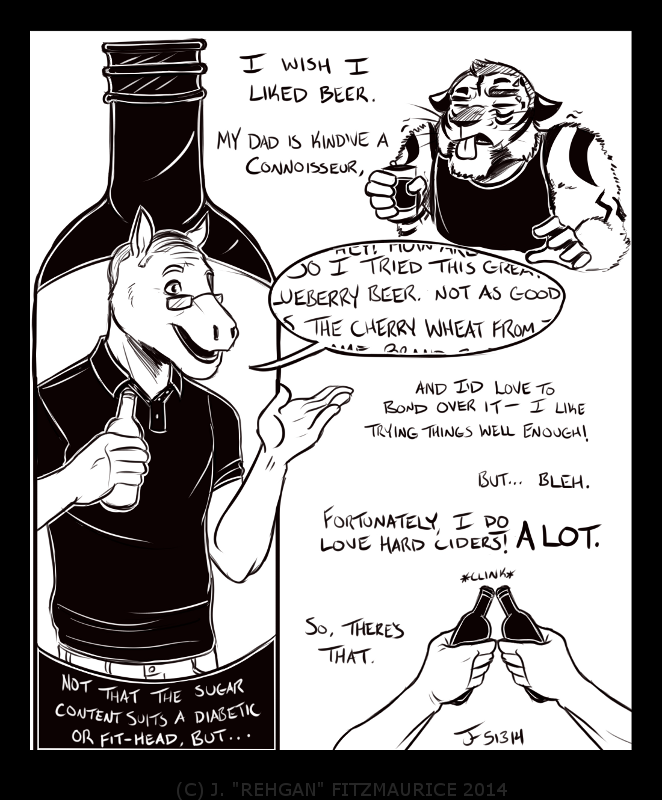 I WISH I
LIKED BEER.
MY DAD IS KIND'VE A
CONNOISSEUR,
HEY! HOW ARE
SO I TRIED THIS GREAT
UEBERRY BEER. NOT AS GOOD
THE CHERRY WHEAT FROM
BRAND
AND I'D LOVE TO
BOND OVER IT — I LIKE
TRYING THINGS WELL ENOUGH!
BUT... BLEH.
FORTUNATELY, I DO
LOVE HARD CIDERS! A LOT.
*CLINK*
SO, THERE'S
THAT.
NOT THAT THE SUGAR
CONTENT SUITS A DIABETIC
OR FIT-HEAD, BUT...
JF 51314
(C) J. "REHGAN" FITZMAURICE 2014